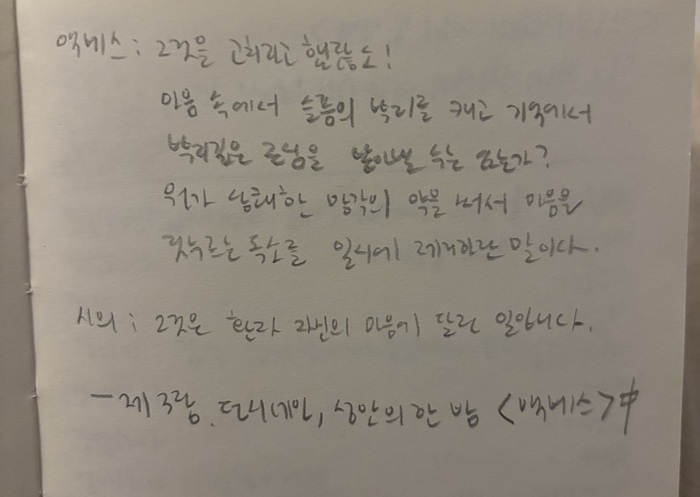 맥베스 : 그것을 고쳐라고 했잖소!
마음 속에서 슬픔의 뿌리를 캐고 기억에서
뿌리깊은 근심을 뽑아낼 수는 없는가?
뭔가 상쾌한 망각의 약을 써서 마음을
짓누르는 독소를 일시에 제거하란 말이다.
시의 : 그것은 환자 자신의 마음에 달린 일입니다.
- 제 3장. 던시네인, 성안의 한 방 <맥베스> 中